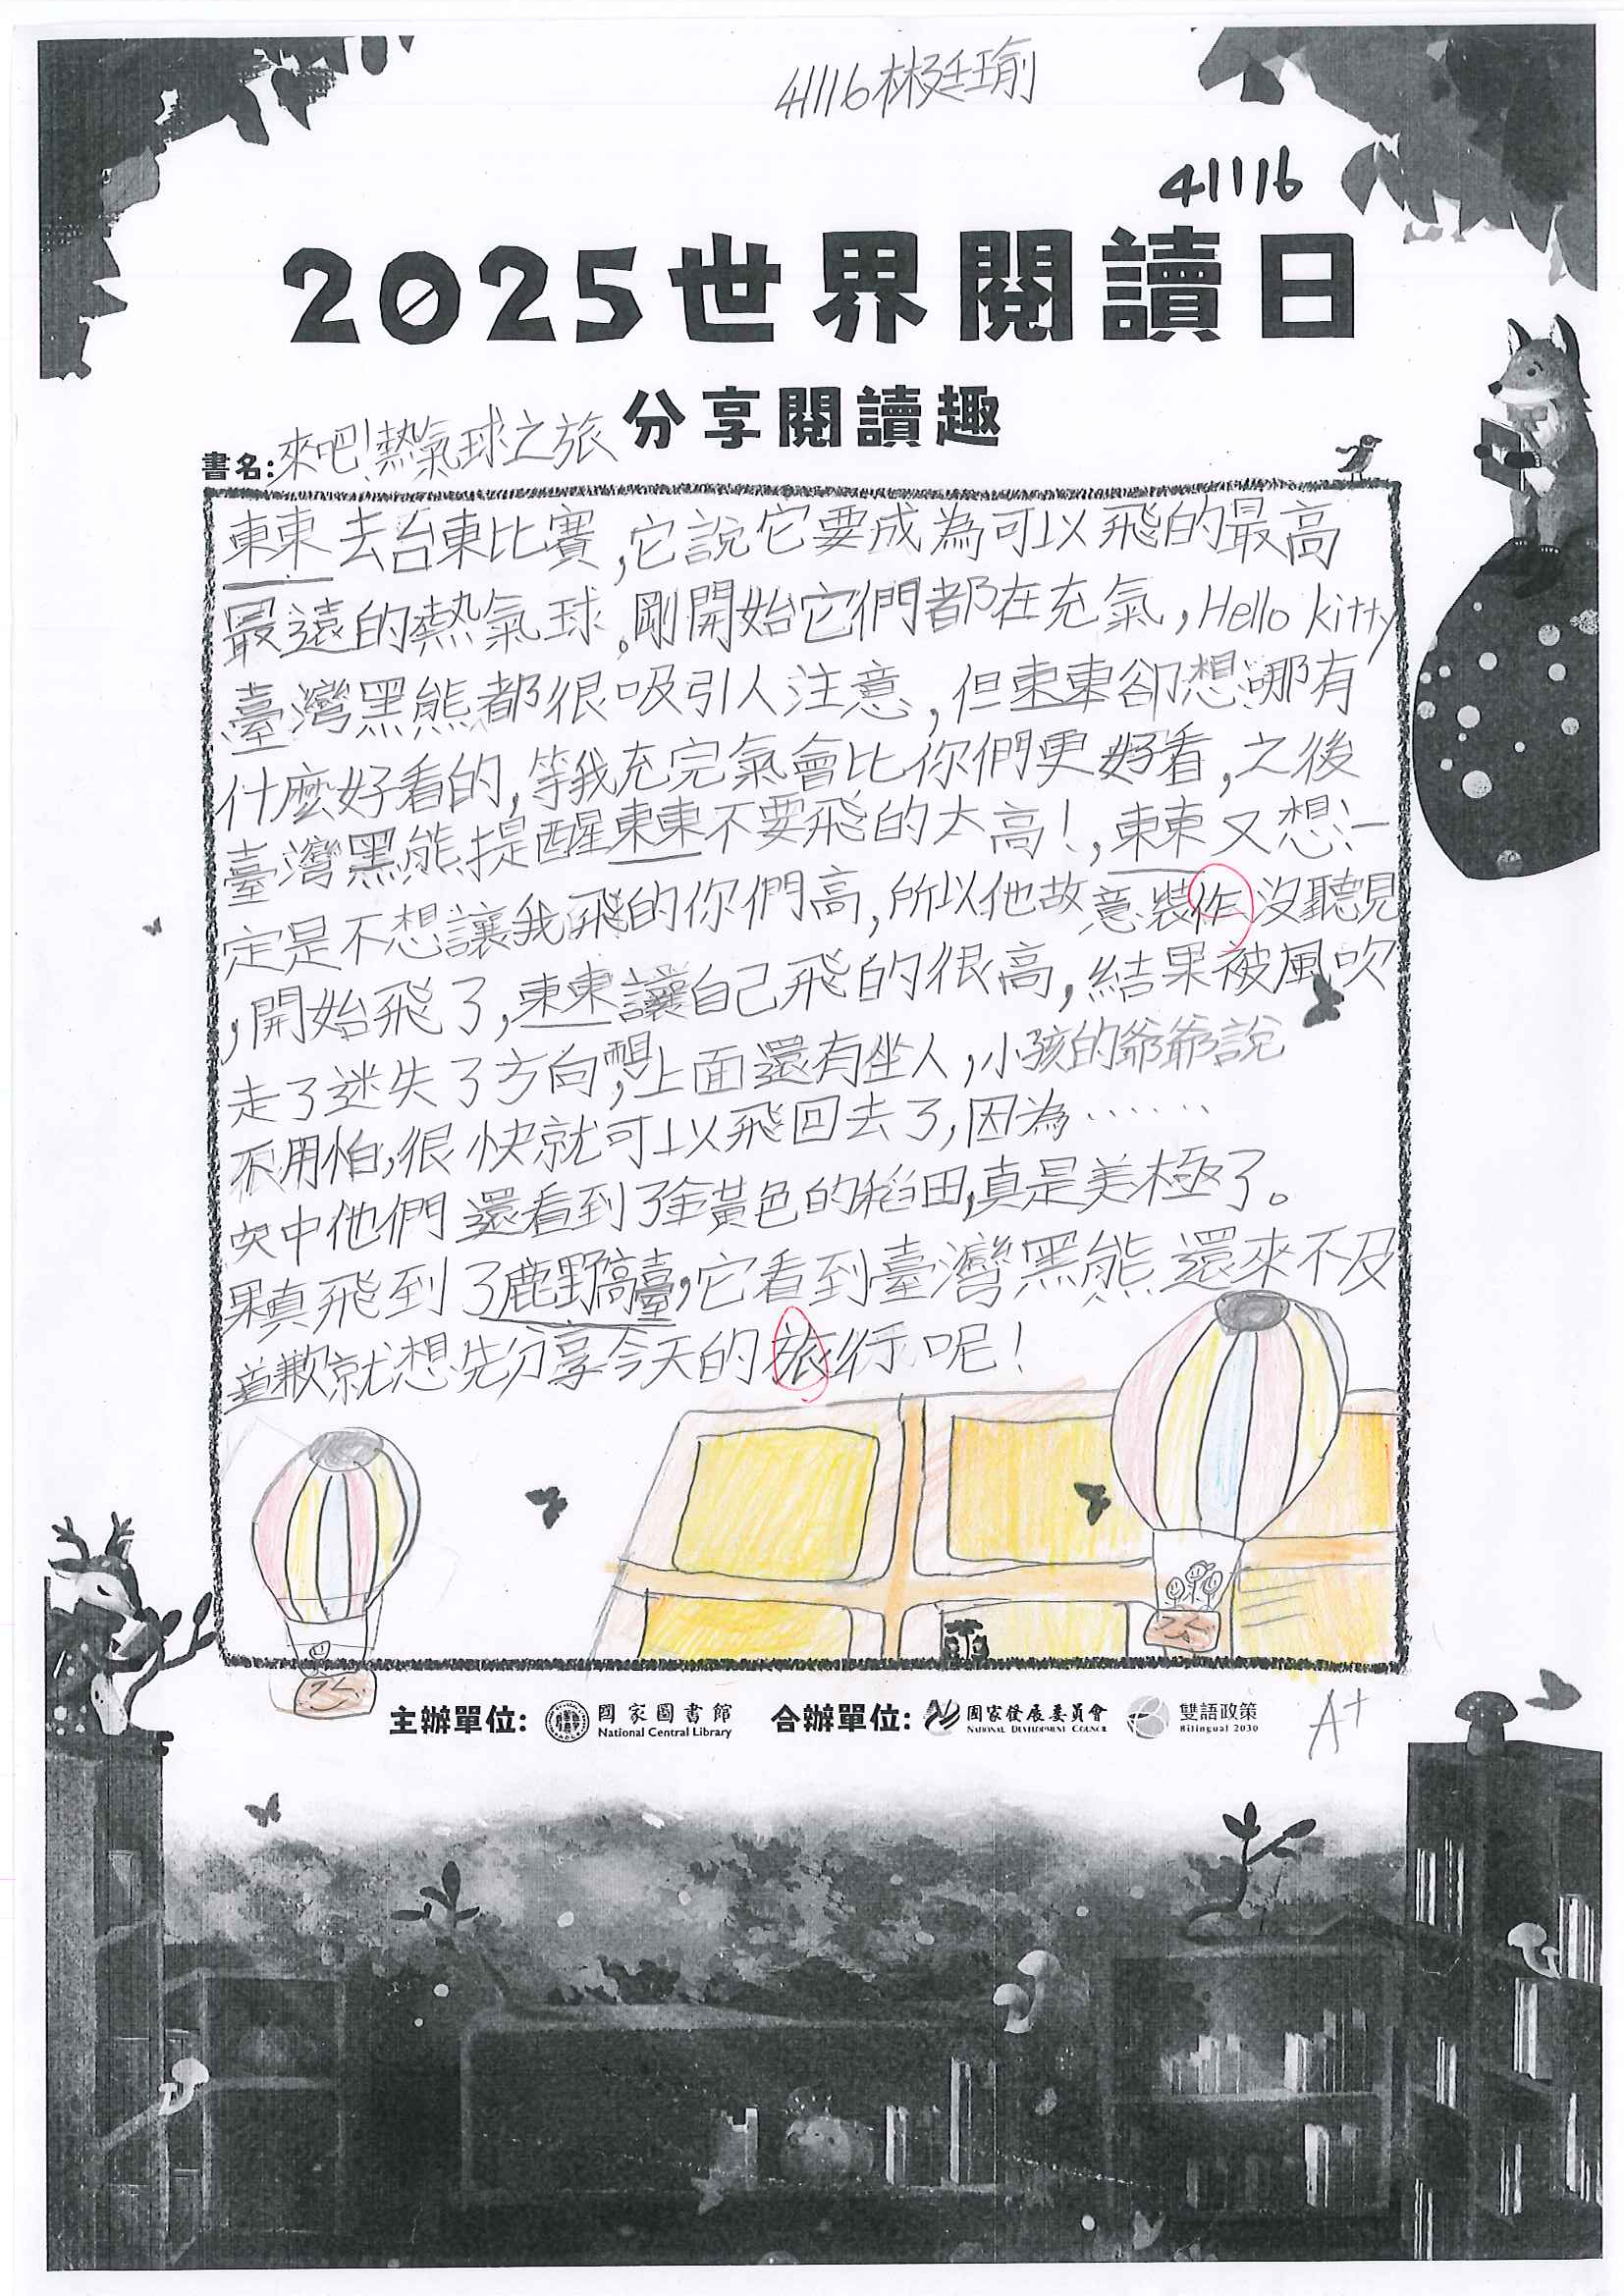 41116林廷瑜
41116
2025世界閱讀日
分享閱讀趣
書名:來吧!熱氣球之旅
東東去台東比賽,它說它要成為可以飛的最高
最遠的熱氣球。剛開始它們都在充氣,Hello kitty
臺灣黑熊都很吸引人注意,但東東卻想:哪有
什麼好看的,等我充完氣會比你們更好看,之後
臺灣黑熊提醒東東不要飛的太高!,東東又想:一
定是不想讓我飛的你們高,所以他故意裝作沒聽見
,開始飛了,東東讓自己飛的很高,結果被風吹
走了迷失了方向,想上面還有坐人,小孩的爺爺說
不用怕,很快就可以飛回去了,因為……
中他們還看到了金黃色的稻田,真是美極了。
果真飛到了鹿野高臺,它看到臺灣黑熊還來不及
道歉就想先分享今天的旅行呢!
主辦單位: 國家圖書館 National Central Library 合辦單位: 國家發展委員會 NATIONAL DEVELOPMENT COUNCIL 雙語政策 Bilingual 2030
A+